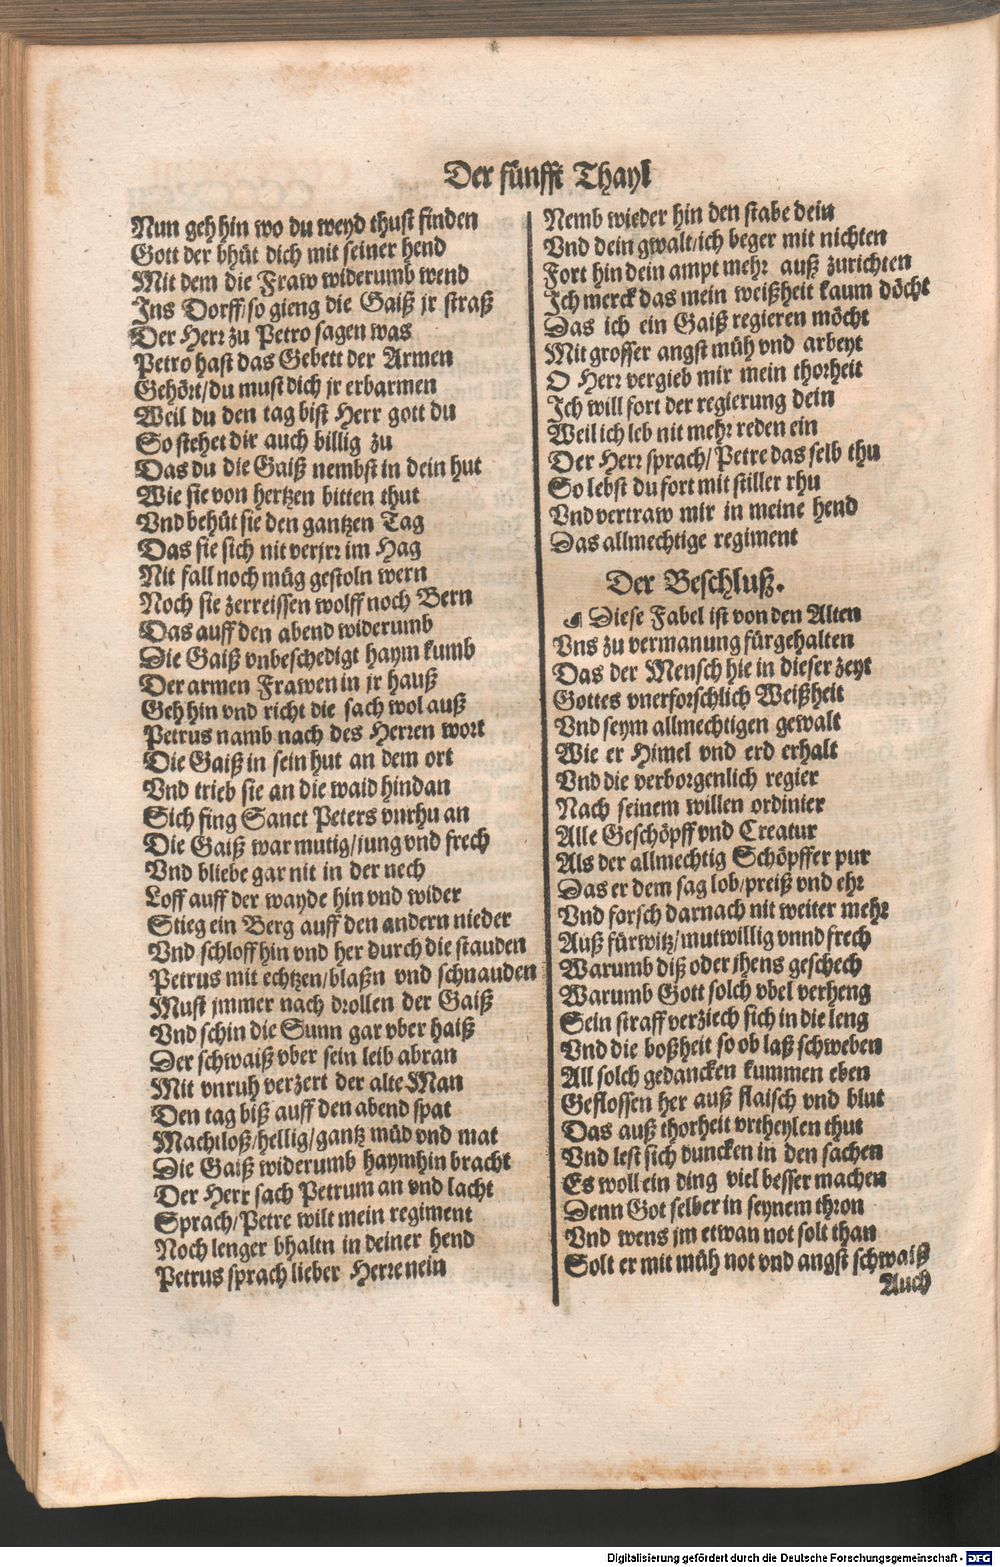 Der fünfft Thayl
Nun geh hin wo du weyd thust finden
Gott der bhüt dich mit seiner hend
Mit dem die Fraw widerumb wend
Ins Dorff/so gieng die Gaiß jr straß
Der Herr zu Petro sagen was
Petro hast das Gebett der Armen
Gehört/du must dich jr erbarmen
Weil du den tag bist Herr gott du
So stehet dir auch billig zu
Das du die Gaiß nembst in dein hut
Wie sie von hertzen bitten thut
Vnd behüt sie den gantzen Tag
Das sie sich nit verjrr im Hag
Nit fall noch müg gestoln wern
Noch sie zerreissen wolff noch Bern
Das auff den abend widerumb
Die Gaiß vnbeschedigt haym kumb
Der armen Frawen in jr hauß
Geh hin vnd richt die sach wol auß
Petrus namb nach des Herren wort
Die Gaiß in sein hut an dem ort
Vnd trieb sie an die waid hindan
Sich fing Sanct Peters vnrhu an
Die Gaiß war mutig/jung vnd frech
Vnd bliebe gar nit in der nech
Loff auff der wayde hin vnd wider
Stieg ein Berg auff den andern nieder
Vnd schloff hin vnd her durch die stauden
Petrus mit echtzen/blaßn vnd schnauden
Must jmmer nach drollen der Gaiß
Vnd schin die Sunn gar vber haiß
Der schwaiß vber sein leib abran
Mit vnruh verzert der alte Man
Den tag biß auff den abend spat
Machtloß/hellig/gantz müd vnd mat
Die Gaiß widerumb haymhin bracht
Der Herr sach Petrum an vnd lacht
Sprach/Petre wilt mein regiment
Noch lenger bhaltn in deiner hend
Petrus sprach lieber Herre nein
Nemb wieder hin den stabe dein
Vnd dein gwalt/ich beger mit nichten
Fort hin dein ampt mehr auß zurichten
Ich merck das mein weißheit kaum döcht
Das ich ein Gaiß regieren möcht
Mit grosser angst müh vnd arbeyt
O Herr vergieb mir mein thorheit
Ich will fort der regierung dein
Weil ich leb nit mehr reden ein
Der Herr sprach/Petre das selb thu
So lebst du fort mit stiller rhu
Vnd vertraw mir in meine hend
Das allmechtige regiment
Der Beschluß.
☙ Diese Fabel ist von den Alten
Vns zu vermanung fürgehalten
Das der Mensch hie in dieser zeyt
Gottes vnerforschlich Weißheit
Vnd seym allmechtigen gewalt
Wie er Himel vnd erd erhalt
Vnd die verborgenlich regier
Nach seinem willen ordinier
Alle Geschöpff vnd Creatur
Als der allmechtig Schöpffer pur
Das er dem sag lob/preiß vnd ehr
Vnd forsch darnach nit weiter mehr
Auß fürwitz/mutwillig vnnd frech
Warumb diß oder jhens geschech
Warumb Gott solch vbel verheng
Sein straff verziech sich in die leng
Vnd die boßheit so ob laß schweben
All solch gedancken kummen eben
Geflossen her auß flaisch vnd blut
Das auß thorheit vrtheylen thut
Vnd lest sich duncken in den sachen
Es woll ein ding viel besser machen
Denn Got selber in seynem thron
Vnd wens jm etwan not solt than
Solt er mit müh not vnd angst schwaiß
Auch
Digitalisierung gefördert durch die Deutsche Forschungsgemeinschaft - DFG